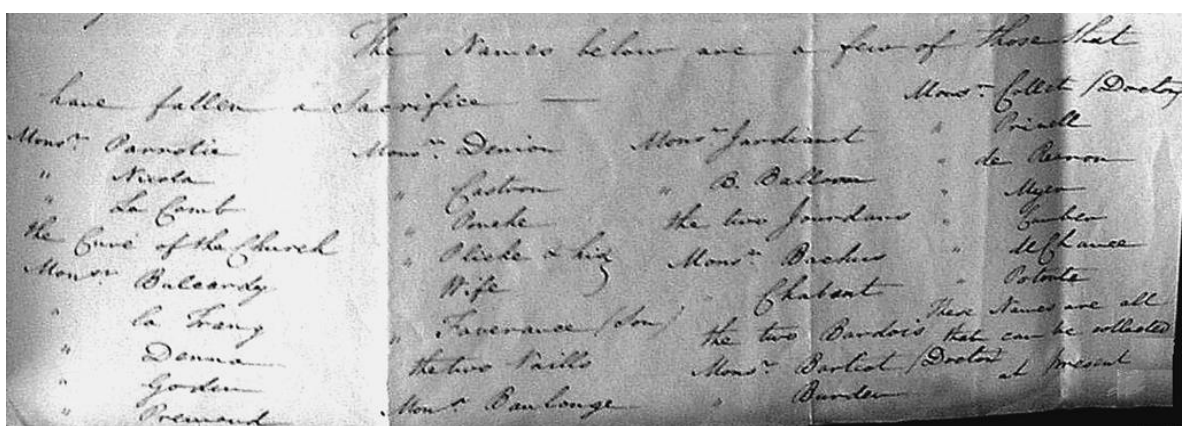 The Names below are a few of those that
have fallen a Sacrifice —
Monsr. Parrotie
" Nicola
" La Comb
the Curé of the Church
Monsr. Buleardy
" la Frang
" Denma
" Goden
" Premond
Monsr. Denion
" Castron
" Pouche
" Plicke & his
Wife
" Faverance (Son)
the two Vaills
Monsr. Baulonge
Monsr. Jardianet
" B. Balloon
the two Jourdans
Monsr. Bachus
" Chabant
the two Bardois
Monsr. Bartiot (Doctor)
" Burden
Monsr. Collet (Doctor)
" Prinell
" de Reenon
" Myer
"
" McChance
" Potonte
These Names are all
that can be collected
at present